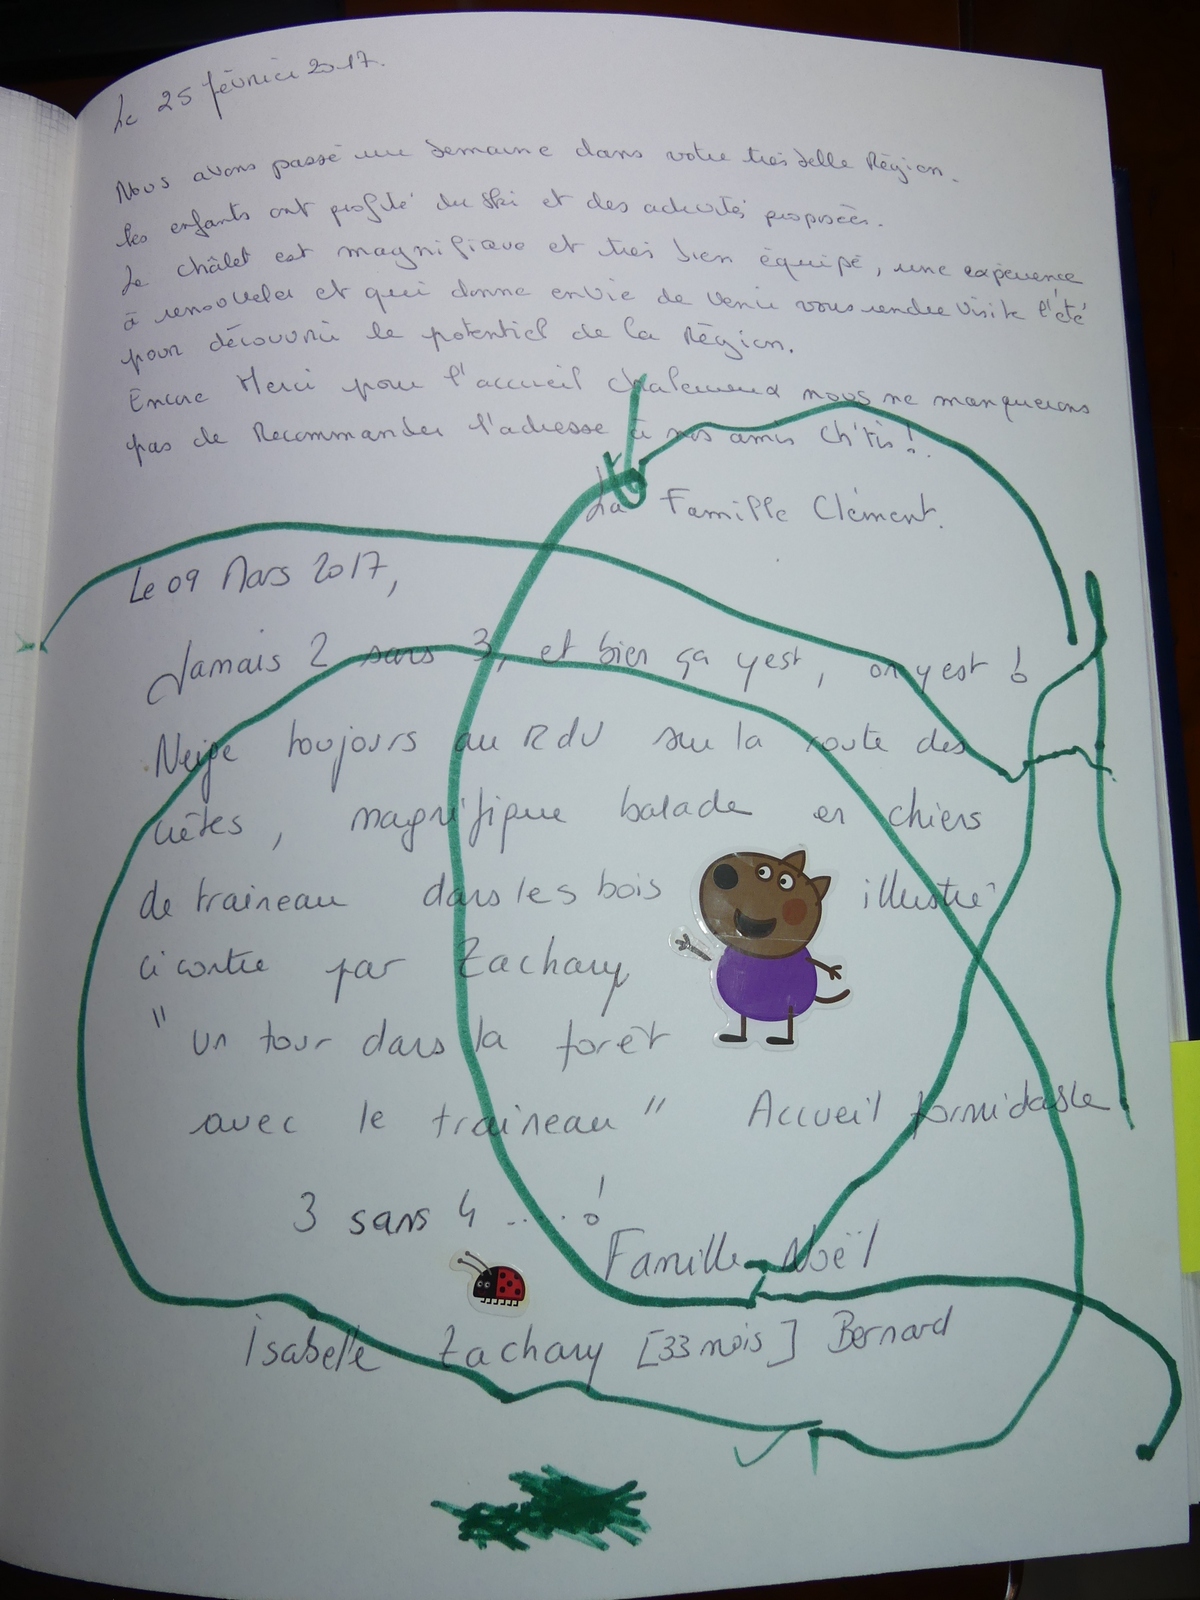 Le 25 février 2017.
Nous avons passé une semaine dans votre très belle Région.
les enfants ont profité du ski et des activités proposées.
Le châlet est magnifique et très bien équipé, une expérience
à renouveler et qui donne envie de venir vous rendre visite l'été
pour découvrir le potentiel de la Région.
Encore Merci pour l'accueil chaleureux nous ne manquerons
pas de Recommander l'adresse à nos amis Ch'tis !.
La Famille Clément.
Le 09 Mars 2017,
Jamais 2 sans 3, et bien ça y est, on y est !
Neige toujours au RdV sur la route des
crêtes, magnifique balade en chiens
de traineau dans les bois illustré
ci contre par Zachary
" un tour dans la forêt
avec le traineau " Accueil formidable
3 sans 4 ..... !
Famille Noël
Isabelle Zachary [33 mois] Bernard